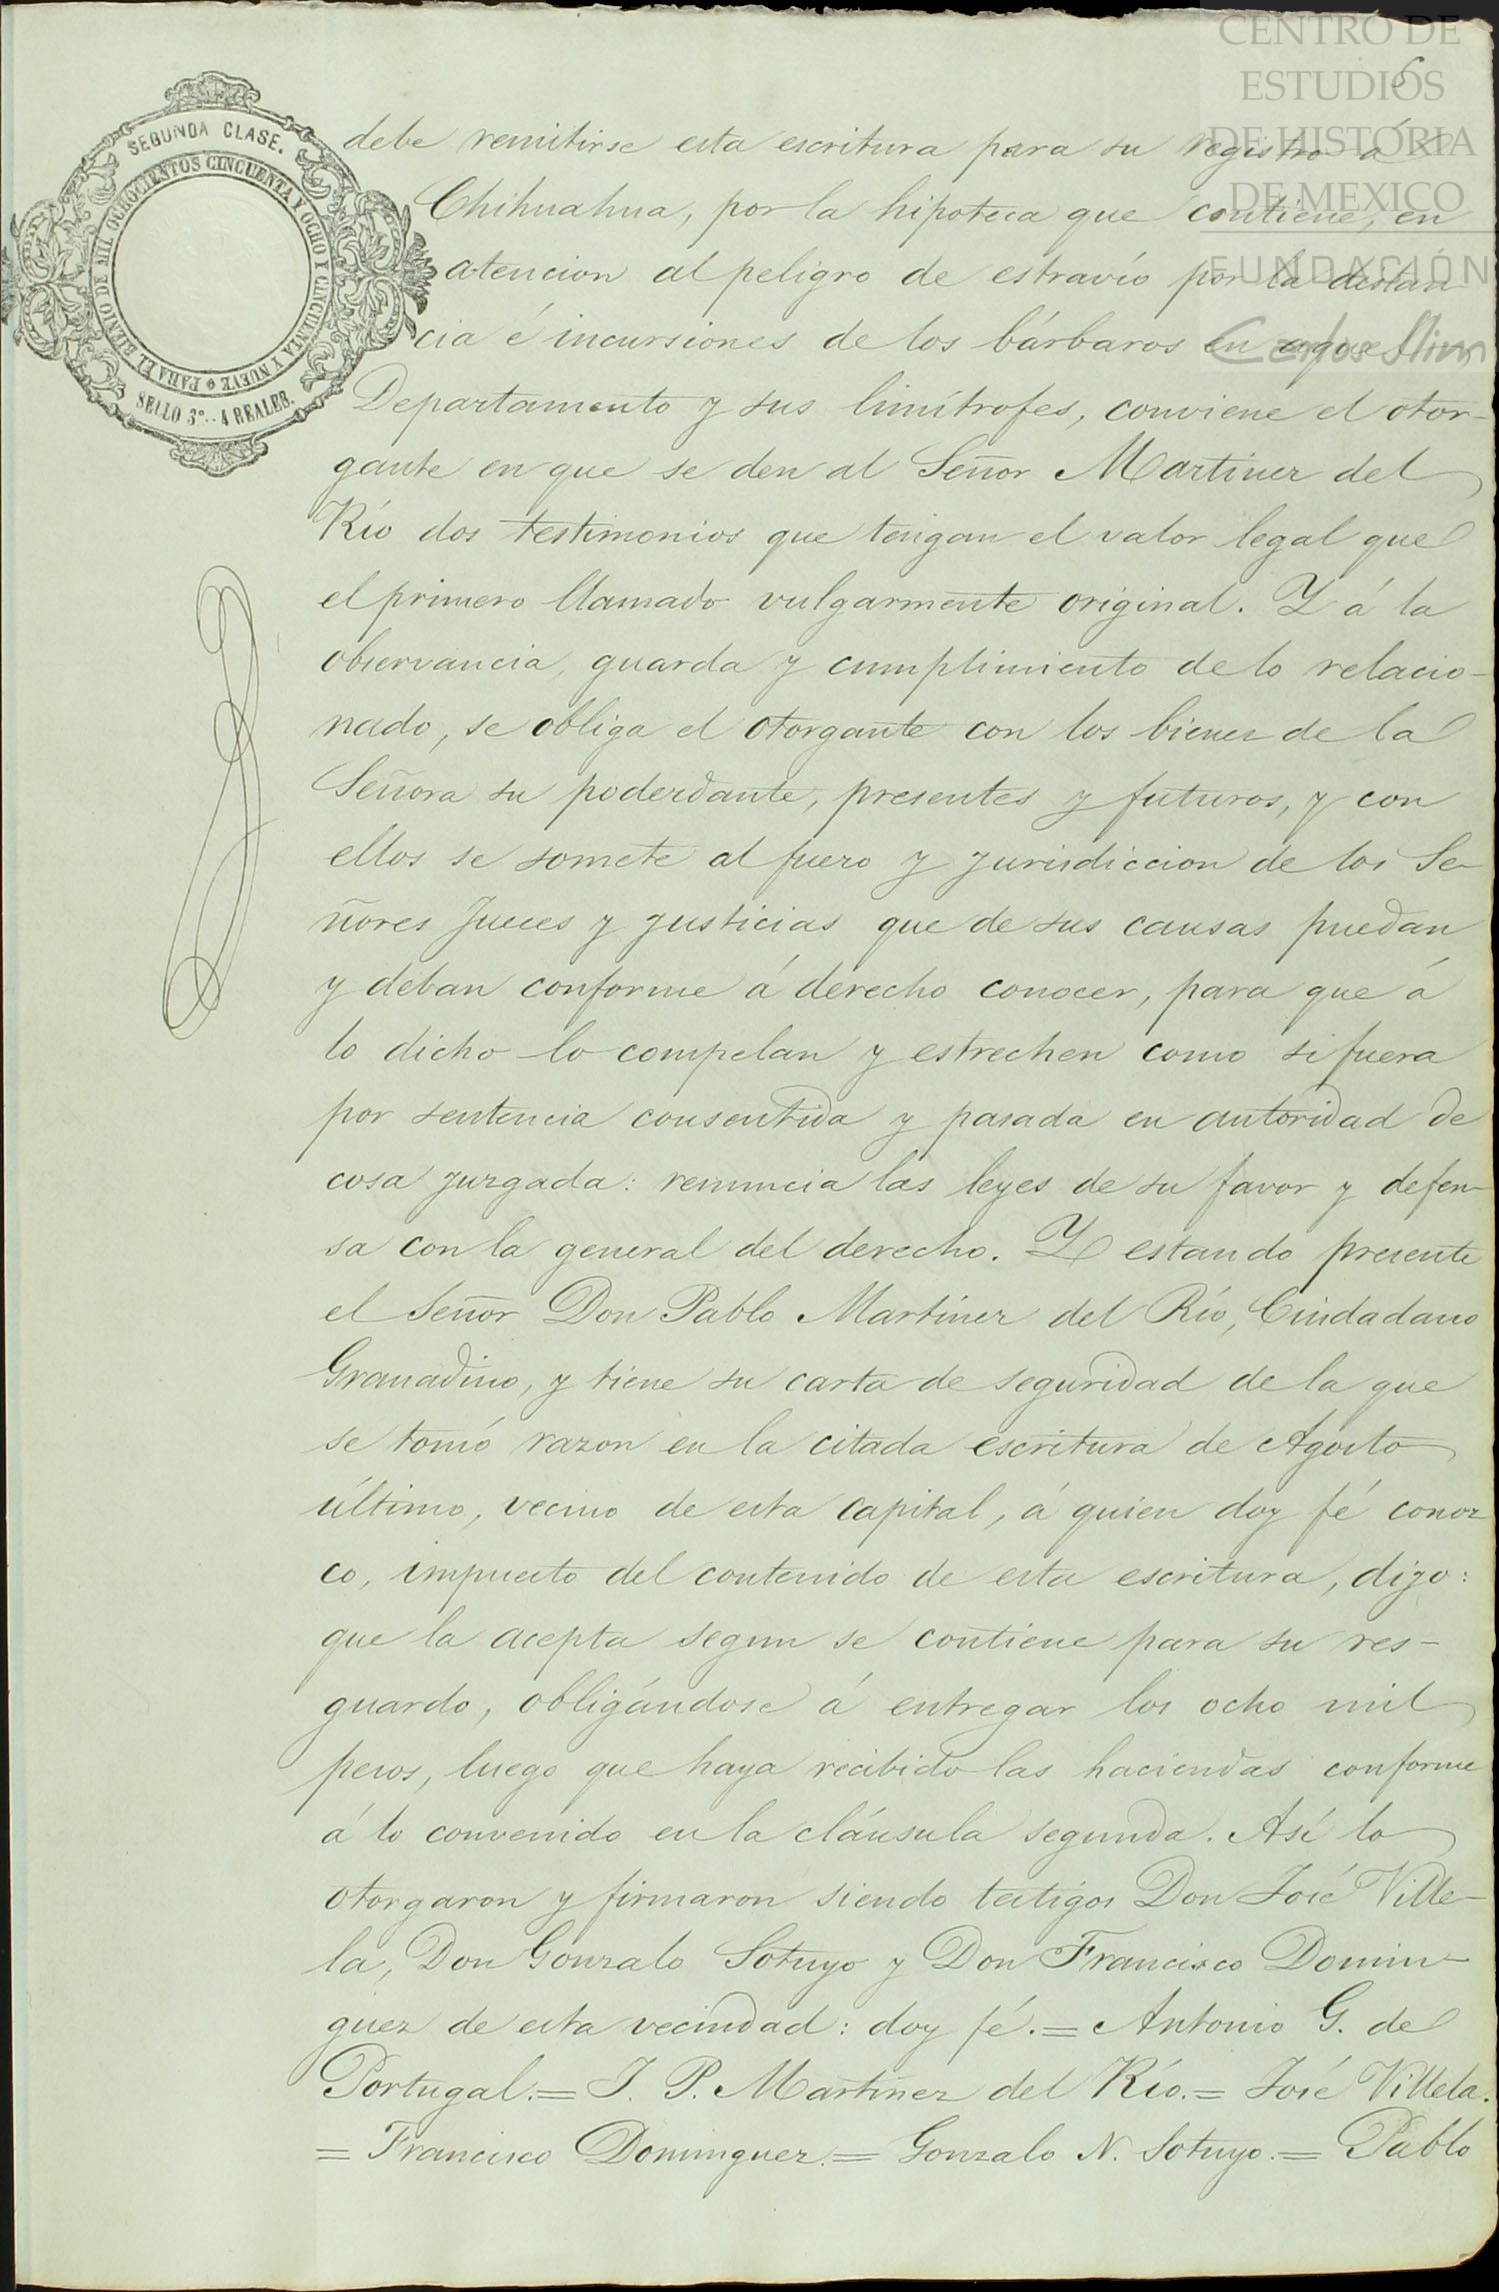 CENTRO DE
ESTUDIOS
DE HISTORIA
DE MEXICO
FUNDACIÓN
Carlos Slim
6
SEGUNDA CLASE.
PARA EL BIENIO DE MIL OCHOCIENTOS CINCUENTA Y OCHO Y CINCUENTA Y NUEVE
SELLO 3º.--4 REALES.
debe remitirse esta escritura para su registro á
Chihuahua, por la hipoteca que contiene, en
atencion al peligro de estravío por la distan
cia é incursiones de los bárbaros en aquel
Departamento y sus limítrofes, conviene el otor-
gante en que se den al Señor Martinez del
Río dos testimonios que tengan el valor legal que
el primero llamado vulgarmente original. Y á la
observancia, guarda y cumplimiento de lo relacio-
nado, se obliga el otorgante con los bienes de la
Señora su poderdante, presentes y futuros, y con
ellos se somete al fuero y jurisdiccion de los Se-
ñores Jueces y justicias que de sus causas puedan
y deban conforme á derecho conocer, para que á
lo dicho lo compelan y estrechen como si fuera
por sentencia consentida y pasada en autoridad de
cosa juzgada: renuncia las leyes de su favor y defen-
sa con la general del derecho. Y estando presente
el Señor Don Pablo Martínez del Río, Ciudadano
Granadino, y tiene su carta de seguridad de la que
se tomó razon en la citada escritura de Agosto
último, vecino de esta capital, á quien doy fé conoz
co, impuesto del contenido de esta escritura, dijo:
que la acepta segun se contiene para su res-
guardo, obligándose á entregar los ocho mil
pesos, luego que haya recibido las haciendas conforme
á lo convenido en la cláusula segunda. Así lo
otorgaron y firmaron siendo testigos Don José Ville-
la, Don Gonzalo Sotuyo y Don Francisco Domin-
guez de esta vecindad: doy fé.= Antonio G. de
Portugal.= J. P. Martinez del Río.= José Villela.
= Francisco Dominguez.= Gonzalo N. Sotuyo.= Pablo